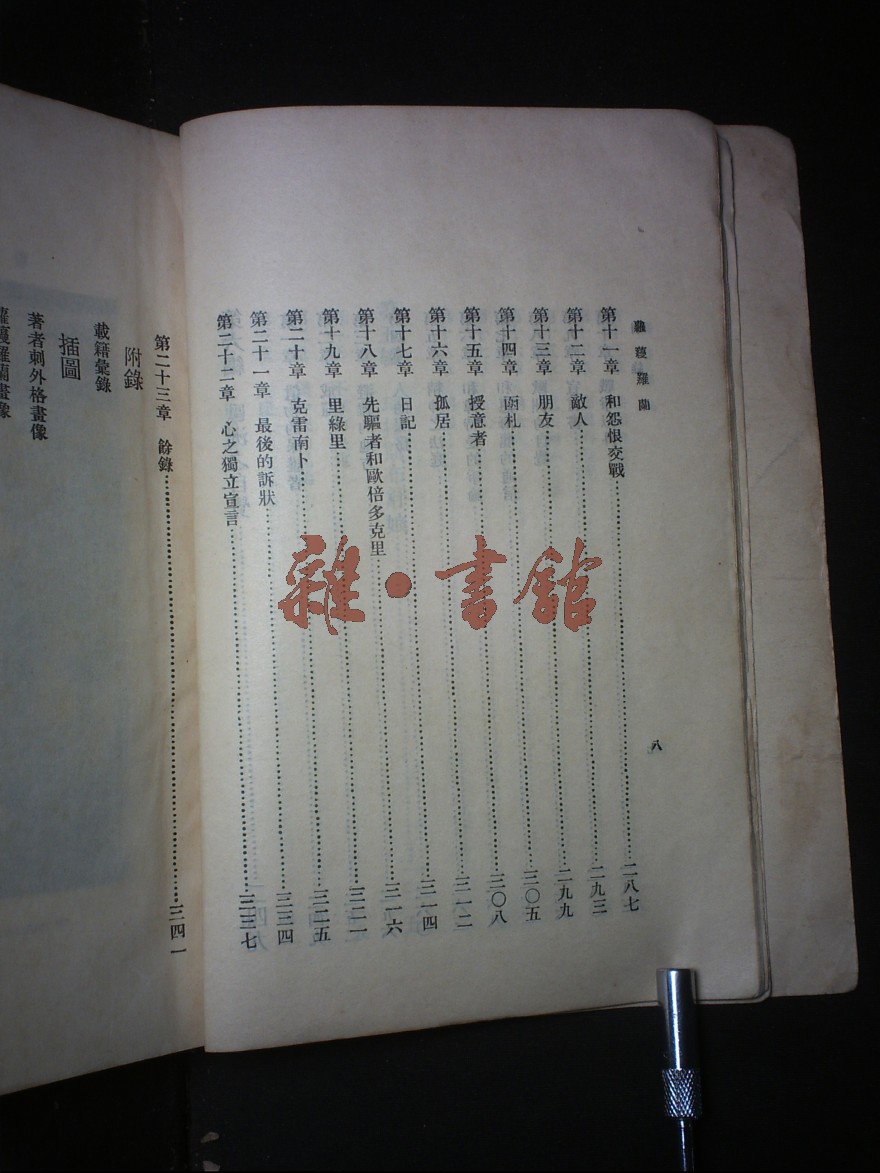 蔓羅蘭
第十一章 和怨恨交戰……二八七
第十二章 敵人……二九三
第十三章 朋友……二九九
第十四章 函札……三〇五
第十五章 授意者……三〇八
第十六章 孤居……三一二
第十七章 日記……三一四
第十八章 先驅者和歐倍多克里……三一六
第十九章 里綠里……三二一
第二十章 克雷南卜……三二五
第二十一章 最後的訴狀……三三四
第二十二章 心之獨立宣言……三三七
八
第二十三章 餘錄……三四一
附錄
載籍彙錄
插圖
著者刺外格畫像
蔓羅蘭畫像
雜·書館